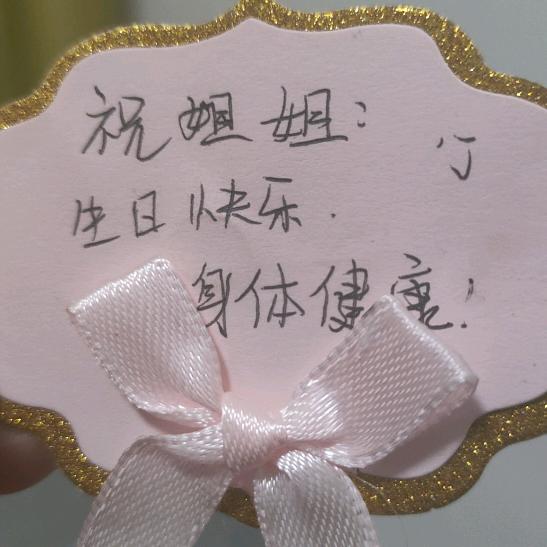 祝姐姐:
生日快乐.
身体健康!